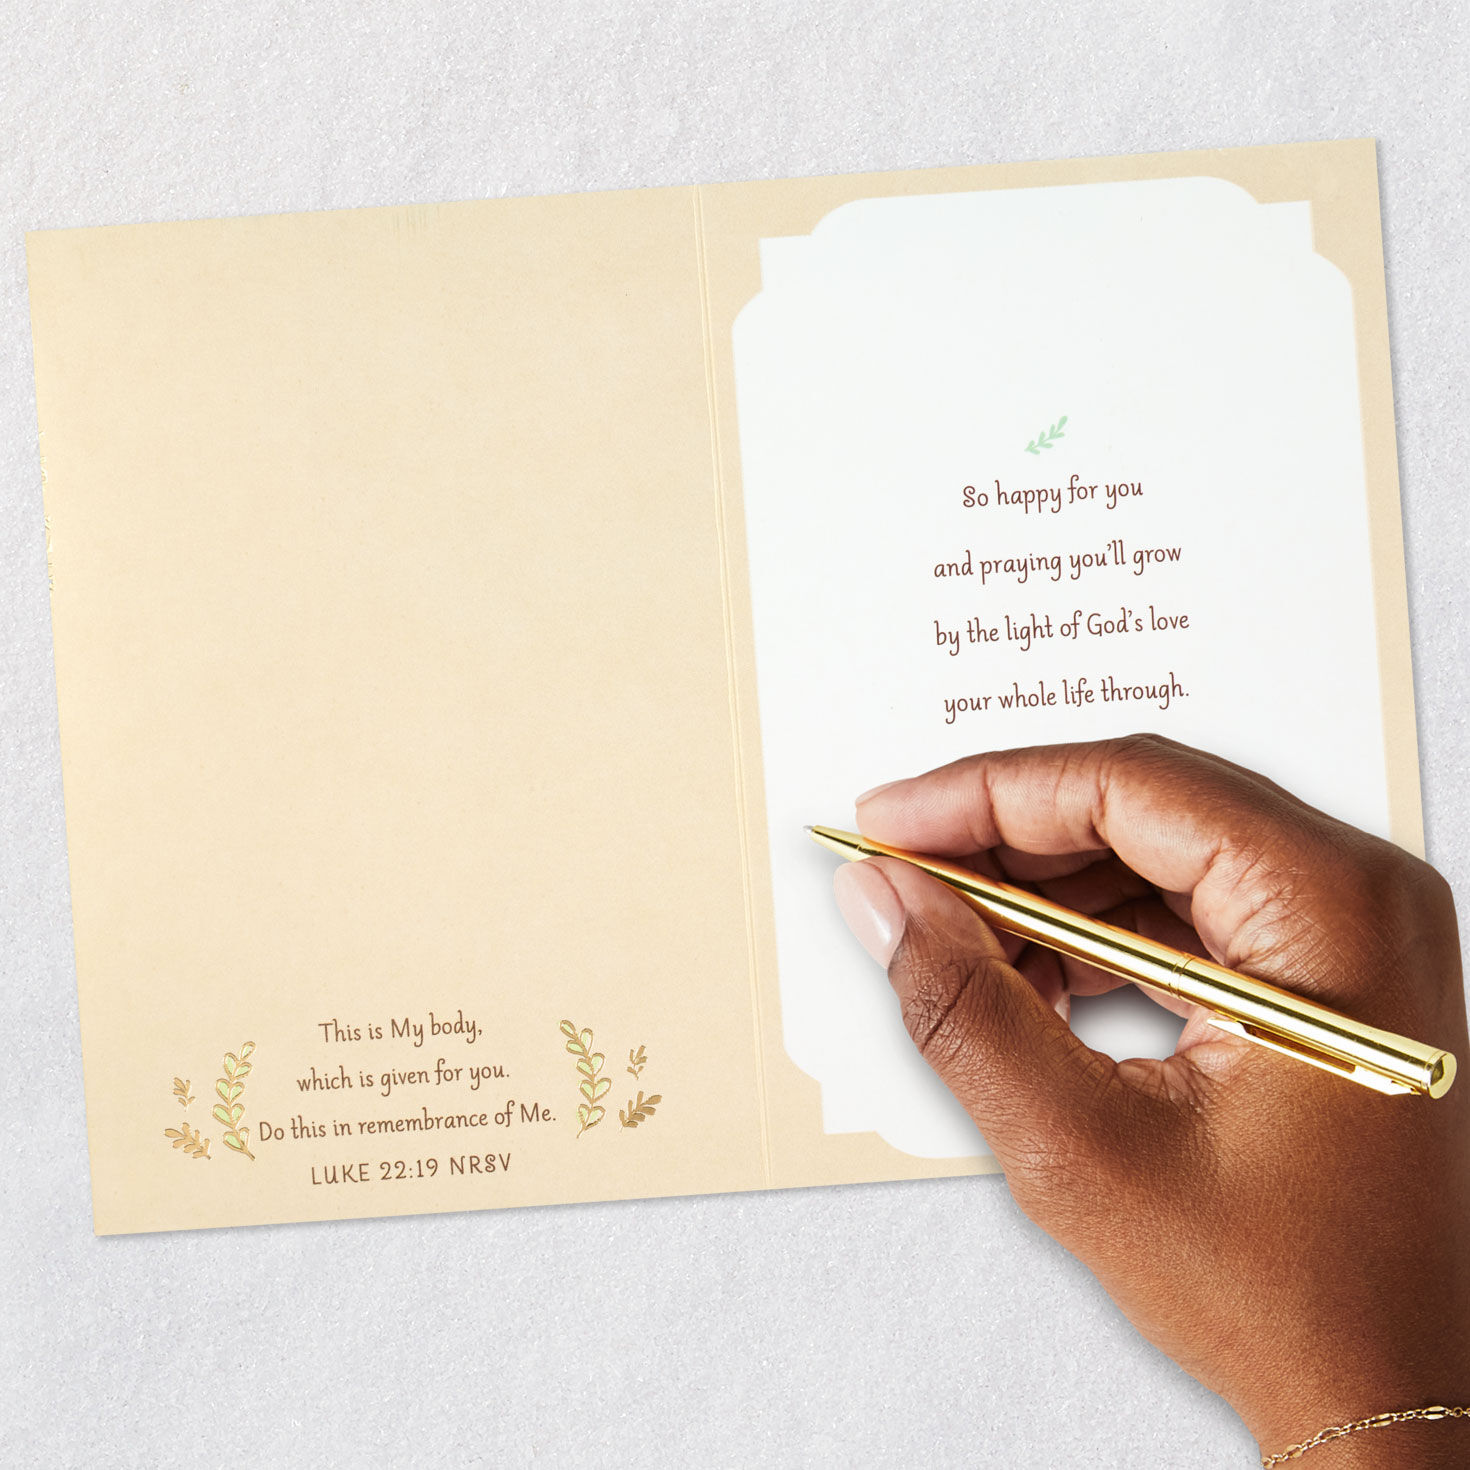 This is My body,
which is given for you.
Do this in remembrance of Me.
LUKE 22:19 NRSV
So happy for you
and praying you'll grow
by the light of God's love
your whole life through.